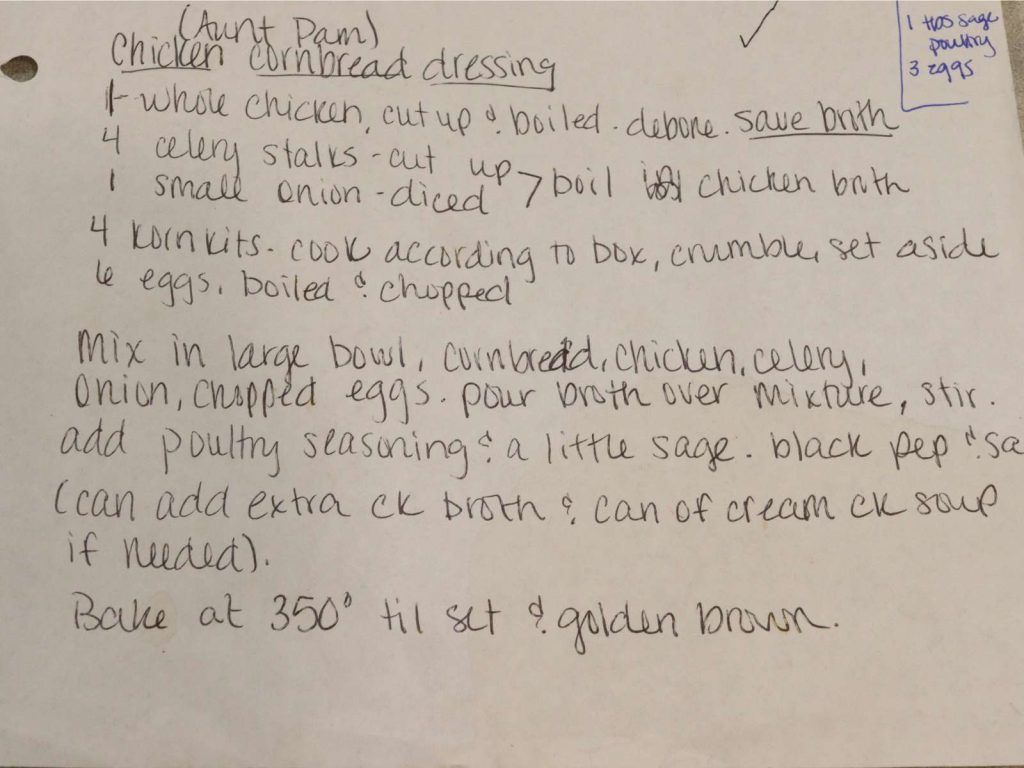 (Aunt Pam)
Chicken cornbread dressing
1 tbs sage
poultry
3 eggs
1- whole chicken, cut up & boiled. debone. save broth
4 celery stalks - cut up
1 small onion - diced > boil chicken broth
4 Kornkits. cook according to box, crumble, set aside
6 eggs, boiled & chopped
Mix in large bowl, cornbread, chicken, celery,
onion, chopped eggs. pour broth over mixture, stir.
add poultry seasoning & a little sage. black pep & sa
(can add extra ck broth & can of cream ck soup
if needed).
Bake at 350° til set & golden brown.